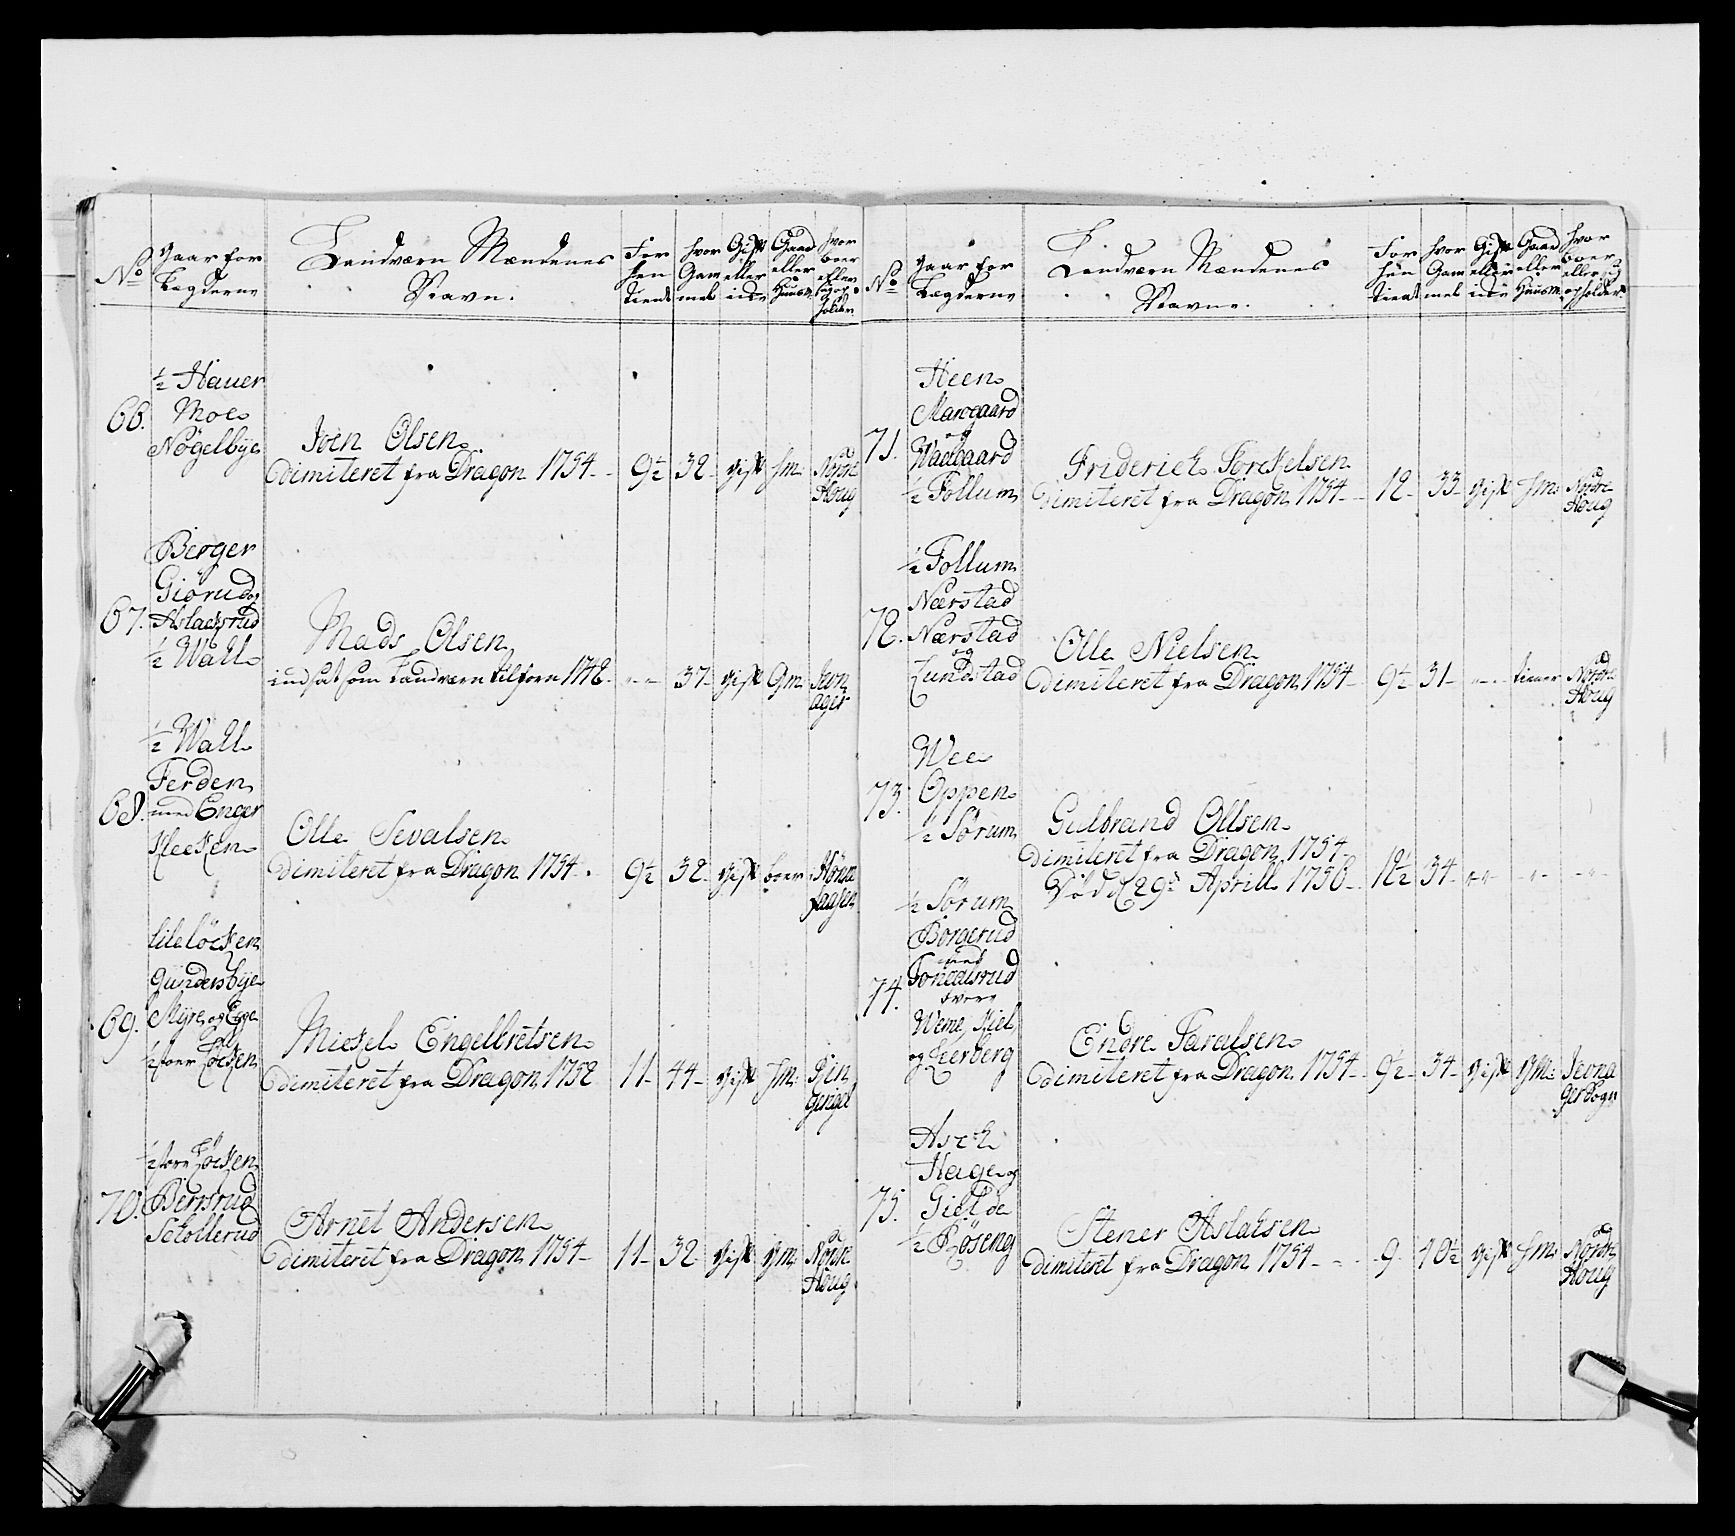 No
Gaar for
Lægderne
Landværn Mændenes
Navn.
For
hen
tient
hvor
Gam
mel
Gift
eller
ide
Gaard
eller
Huusm.
hvor
boer
eller
opor
holder
66.
½ Hauer
Moe
Nögelbye
Joen Olsen
dimiteret fra Dragon 1754
9½ 32 gift hm: Nordre
Houg
67.
Berger
Giörud og
Aslachsrud
½ Wall
Mads Olsen
indsat som Landværn tilforn 1748 - - 37 gift Gm: Jevn
ager
68.
½ Wall
Ferden
med Enger
Kleeken
Olle Sevalsen
dimiteret fra Dragon 1754 9½ 32 gift boer Hönne
faassen
69.
Lilelöcken
Gundersbye
Myre og Egge
½ Löcken
Mickel Engelbretsen
dimiteret fra Dragon 1752 11 44 gift hm:
gerigel
70.
½ Löcken
Berrsrud
Schollerud
Arnet Andersen
dimiteret fra Dragon 1754 11 32 gift Gm: Nordre
Houg
No
Gaar for
Lægderne
Landværn Mændenes
Navne.
For
hen
tient
hvor
Gam
mel
Gift
eller
ide
Gaard
eller
Huusm.
hvor
boer
eller sig
opholder
71.
Heen
Marigaard
og
Waagaard
½ Follum
Friderich Torckelsen
dimiteret fra Dragon 1754 12 33 gift hm: Nordre
Houg
72.
½ Follum
Nærstad
Nærstad
og
Lundstad
Olle Nielsen
dimiteret fra Dragon 1754 9½ 31 - - tiener Nordre
Houg
73.
Wee
Oppen
½ Sörum
Gulbrand Ollsen
dimiteret fra Dragon 1754
Död d 29de Aprill 1756 12½ 34
74.
½ Sörum
Borgerud
med
Tonedsrud
Weme Kiel
og Leerberg
Endre Taralsen
dimiteret fra Dragon 1754 9½ 34 gift Gm: Jevna
ger Sogn
75.
Asch
Hage og
Gielde
½ Röseng
Stener Aslaksen
dimiteret fra Dragon 1754 9 40½ gift hm: Nordre
Houg